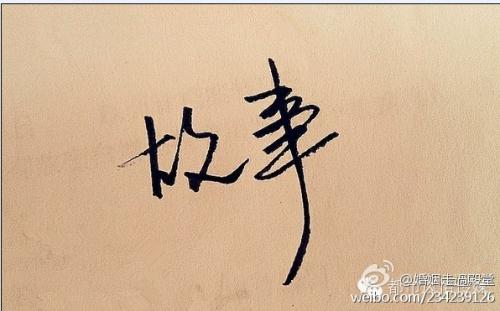 故事
@婚姻走過殿堂
weibo.com/234239126